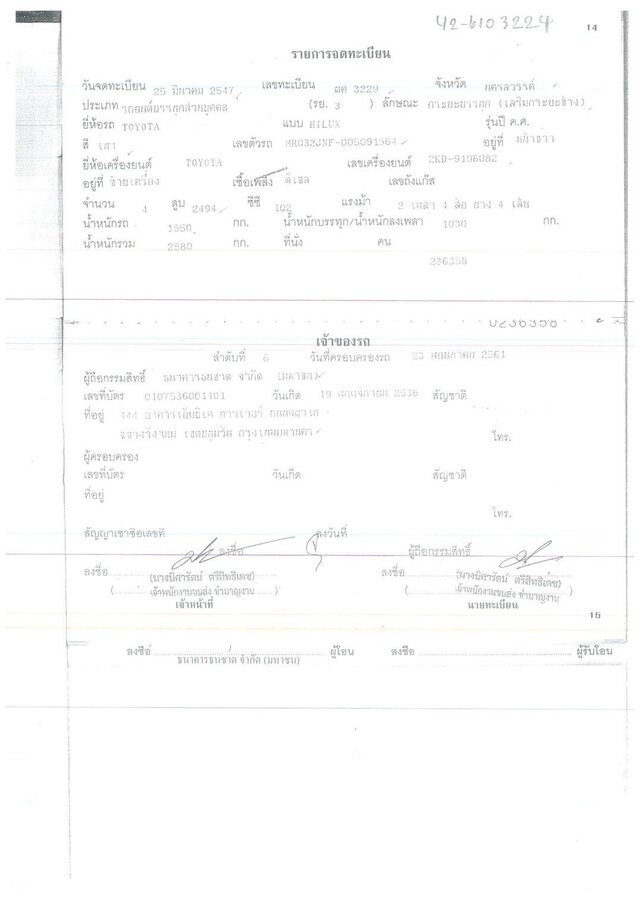 42-6103224
14
รายการจดทะเบียน
วันจดทะเบียน 25 มีนาคม 2547 เลขทะเบียน ผค 3229 จังหวัด นครสวรรค์
ประเภท รถยนต์บรรทุกส่วนบุคคล (รย. 3 ) ลักษณะ กระบะบรรทุก (เสริมกระบะข้าง)
ยี่ห้อรถ TOYOTA แบบ HILUX รุ่นปี ค.ศ.
สี เทา เลขตัวรถ MR032JNF-005091564 อยู่ที่ หน้าขวา
ยี่ห้อเครื่องยนต์ TOYOTA เลขเครื่องยนต์ 2KD-9106082
อยู่ที่ ซ้ายเครื่อง เชื้อเพลิง ดีเซล เลขถังแก๊ส
จำนวน 4 สูบ 2494 ซีซี 102 แรงม้า 2 เพลา 4 ล้อ ยาง 4 เส้น
น้ำหนักรถ 1550 กก. น้ำหนักบรรทุก/น้ำหนักลงเพลา 1030 กก.
น้ำหนักรวม 2580 กก. ที่นั่ง คน
236358
0236358
เจ้าของรถ
ลำดับที่ 6 วันที่ครอบครองรถ 23 พฤษภาคม 2561
ผู้ถือกรรมสิทธิ์ ธนาคารธนชาต จำกัด (มหาชน)
เลขที่บัตร 0107536001401 วันเกิด 19 พฤศจิกายน 2536 สัญชาติ
ที่อยู่ 444 อาคารเอ็มบีเค ทาวเวอร์ ถนนพญาไท
แขวงวังใหม่ เขตปทุมวัน กรุงเทพมหานคร โทร.
ผู้ครอบครอง
เลขที่บัตร วันเกิด สัญชาติ
ที่อยู่
โทร.
สัญญาเช่าซื้อเลขที่ ลงวันที่
ลงชื่อ ผู้ถือกรรมสิทธิ์
ลงชื่อ (นางนิศารัตน์ ศรีสิทธิเดช) ลงชื่อ (นางนิศารัตน์ ศรีสิทธิเดช)
( เจ้าพนักงานขนส่ง ชำนาญงาน ) ( เจ้าพนักงานขนส่ง ชำนาญงาน )
เจ้าหน้าที่ นายทะเบียน
15
ลงชื่อ ผู้โอน ลงชื่อ ผู้รับโอน
ธนาคารธนชาต จำกัด (มหาชน)